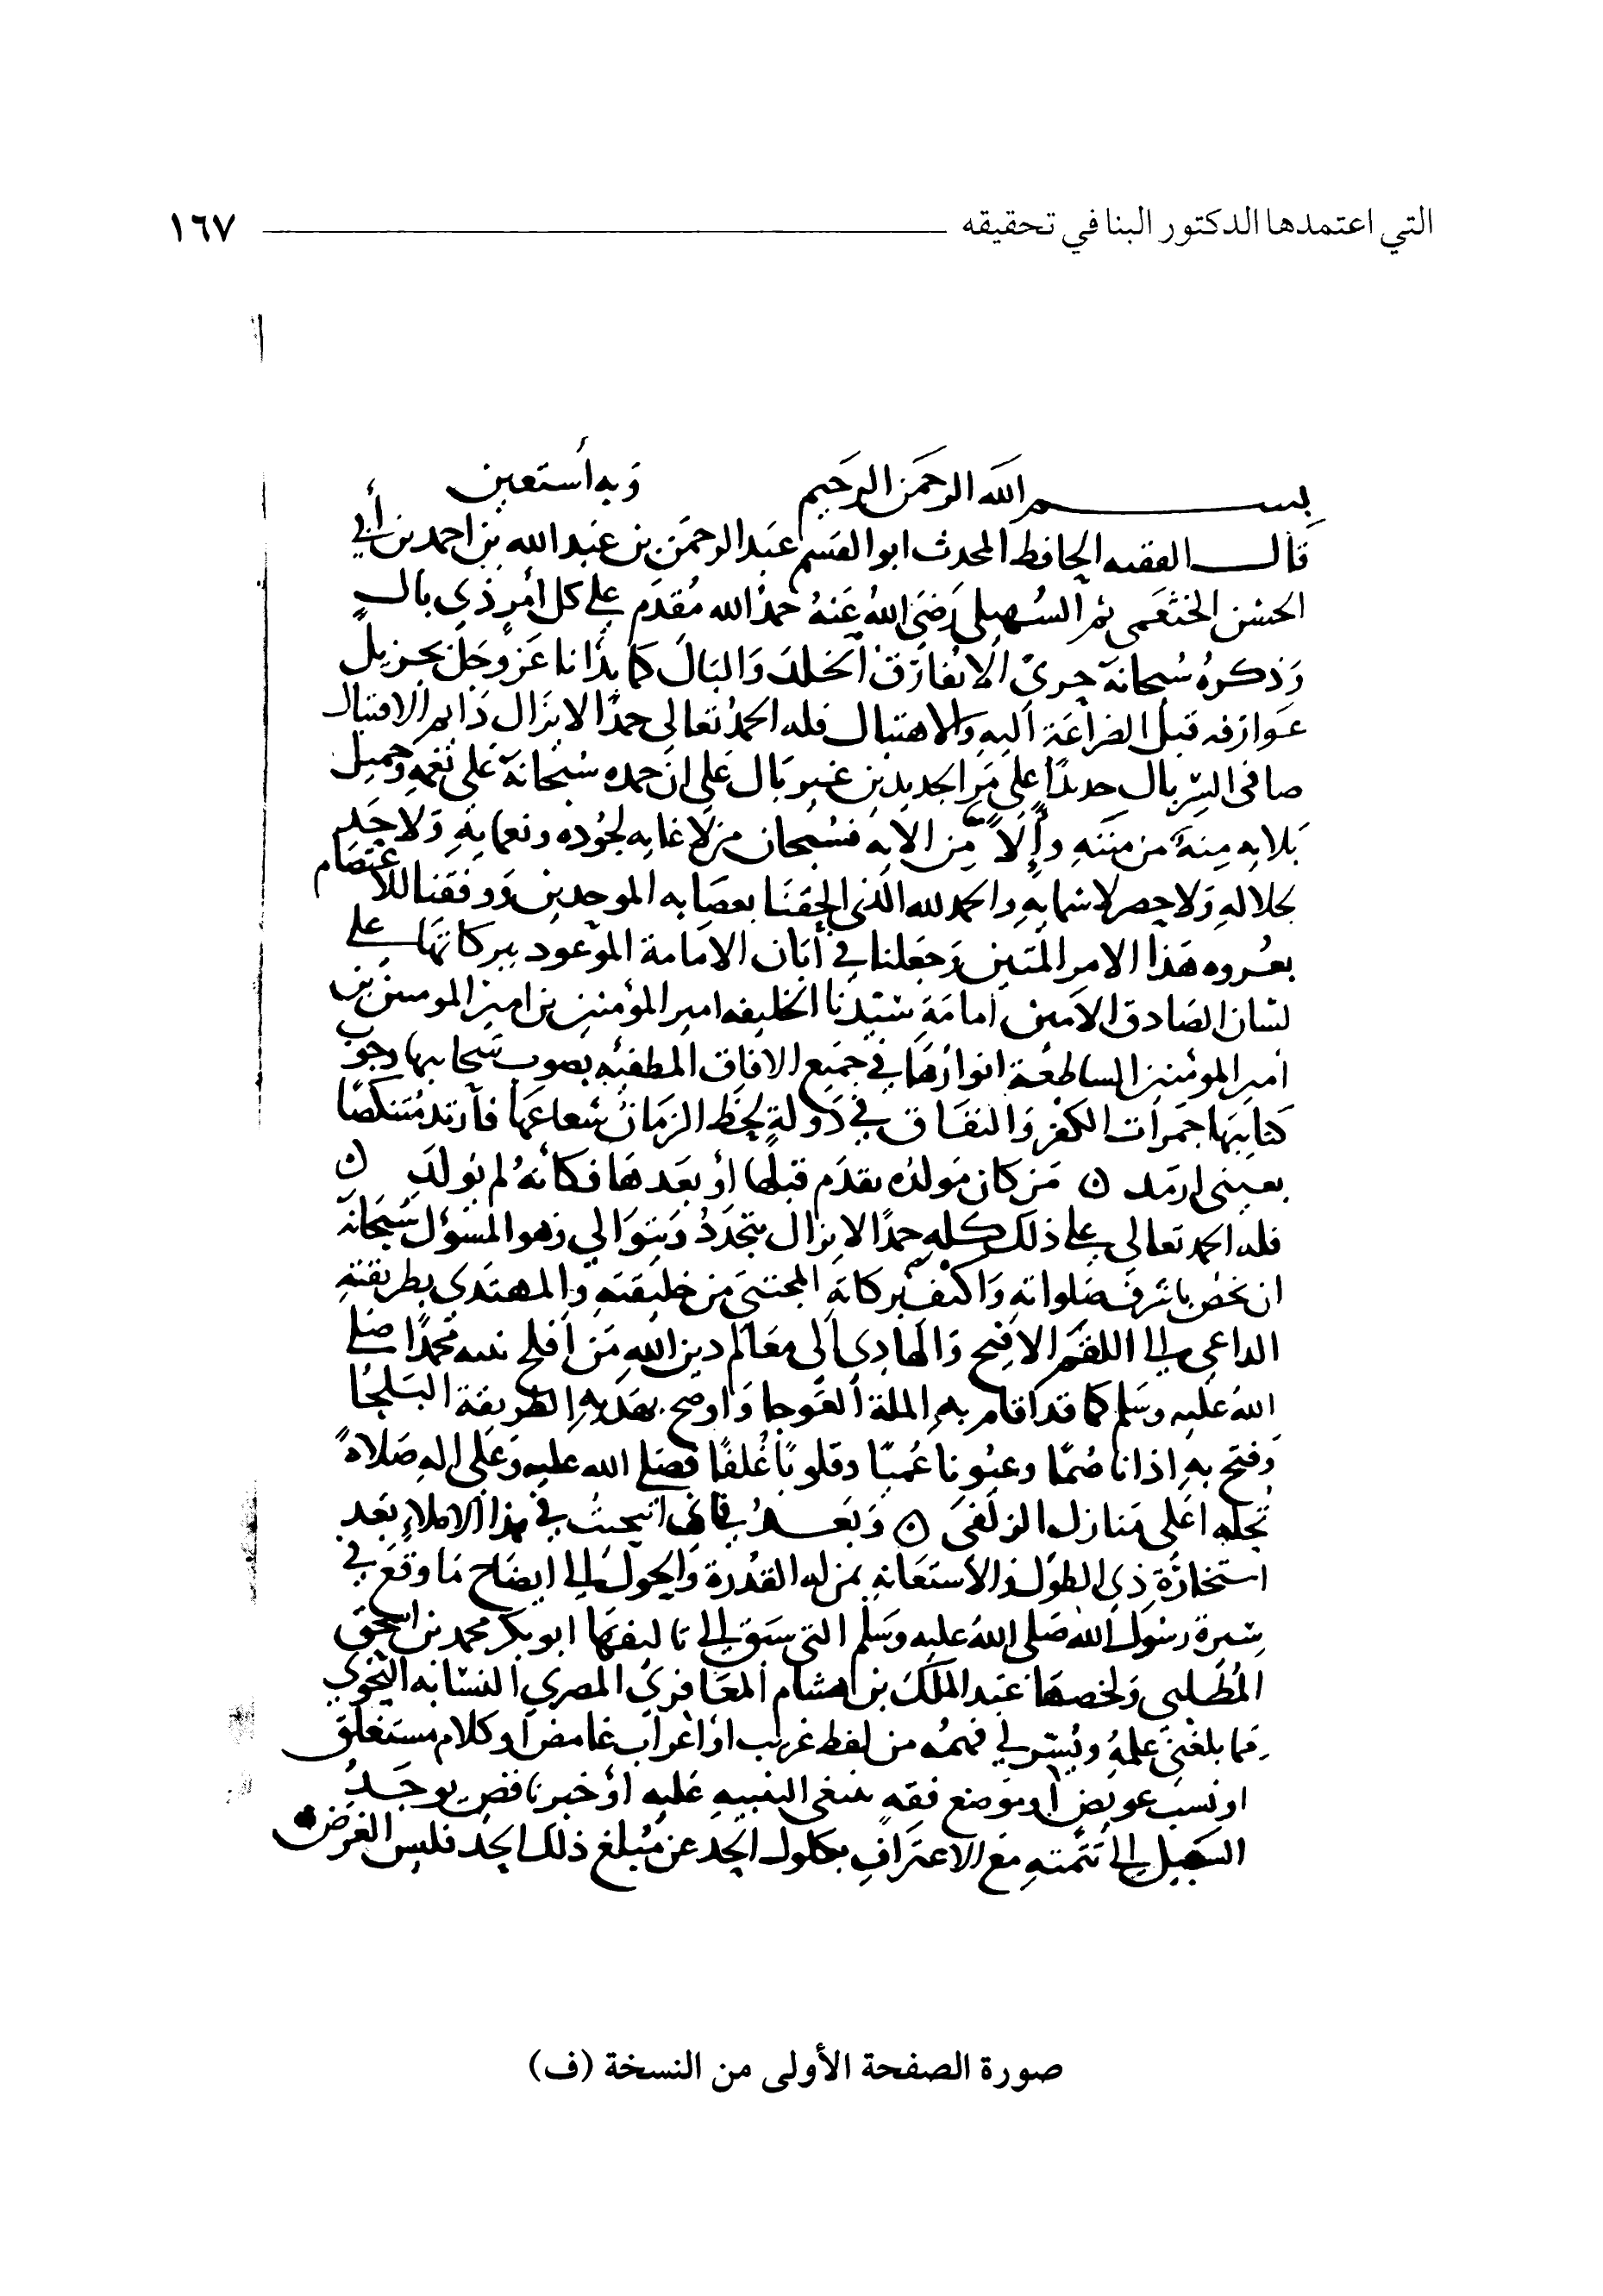 التي اعتمدها الدكتور البنا في تحقيقه ١٦٧
بسم الله الرحمن الرحيم وبه أستعين
قال الفقيه الحافظ المحدث ابو القسم عبد الرحمن بن عبد الله بن احمد بن أبي
الحسن الخثعمي ثم السهيلي رضي الله عنه حمد الله مقدم على كل أمر ذي بال
وذكره سبحانه حري الا يفارق الخلد والبال كما بدانا عز وجل بجزيل
عوارفه قبل الضراعة اليه والاهتبال فله الحمد تعالى حمدا لا يزال دايم الاقتبال
ضافي السربال جديدا على مر الجديدين غير بال على ان حمده سبحانه على نعمه وجميل
بلايه منة من مننه وإلا من الايه فسبحان من لا غاية لجوده ونعمايه ولا حد
لجلاله ولا حصر لاسمايه والحمد لله الذي الحقنا بعصابه الموحدين ووفقنا للاعتصام
بعروه هذا الامر المتين وجعلنا في أبان الامامة الموعود ببركاتها على
لسان الصادق الامين امامة سيدنا الخليفه امير المؤمنين بن امير المومنين بن
أمير المومنين الساطعة انوارها في جميع الافاق المطفيه بصوب سحابيها وجوب
كتايبها جمرات الكفر والنفاق في دولة لحظ الزمان شعاعها فارتد متنكصا
بعيني ارمد ن من كان مولده تقدم قبلها أو بعدها فكأنه لم يولد ن
فله الحمد تعالى على ذلك كله حمدا لا يزال يتجدد ويتوالي وهو المسؤل سبحانه
ان يخص باشرف صلواته واكثف بركاته المجتبى من خليقته والمهتدي بطريقته
الداعي الى اللقم الافيح والهادي الى معالم دين الله من افلح نبيه محمدا صلى
الله عليه وسلم كما قد اقام به الملة العوجا واوضح بهديه الطريقة البلجا
وفتح به اذانا صما وعيونا عميا وقلوبا غلفا فصلى الله عليه وعلى اله صلاة
تحله اعلى منازل الزلفى ن وبعد فاني انتحيت في هذا الاملاء بعد
استخارة ذي الطول والاستعانة بمن له القدرة والحول الى ايضاح ما وقع في
سيرة رسول الله صلى الله عليه وسلم التي سبق الى تاليفها ابو بكر محمد بن اسحق
المطلبي ولخصها عبد الملك بن هشام المعافري المصري النسابه النحوي
مما بلغني علمه ويسر لي فهمه من لفظ غريب او اعراب غامض او كلام مستغلق
او نسب عويص أو موضع فقه ينبغي التنبيه عليه أو خبر ناقص يوجد
السبيل الى تتمته مع الاعتراف بكلول الحد عن مبلغ ذلك الحد فليس الغرض
صورة الصفحة الأولى من النسخة (ف)